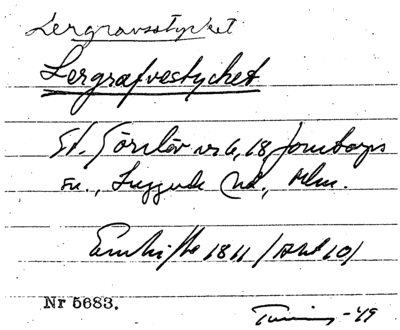 Lergravsstycket
Lergrafvestycket
St. Görslöv nr 6, 18, Jonstorps
sn., Luggude hd., Mlm.
Enskifte 1811 / Akt 10 /
Nr 5683.
-49